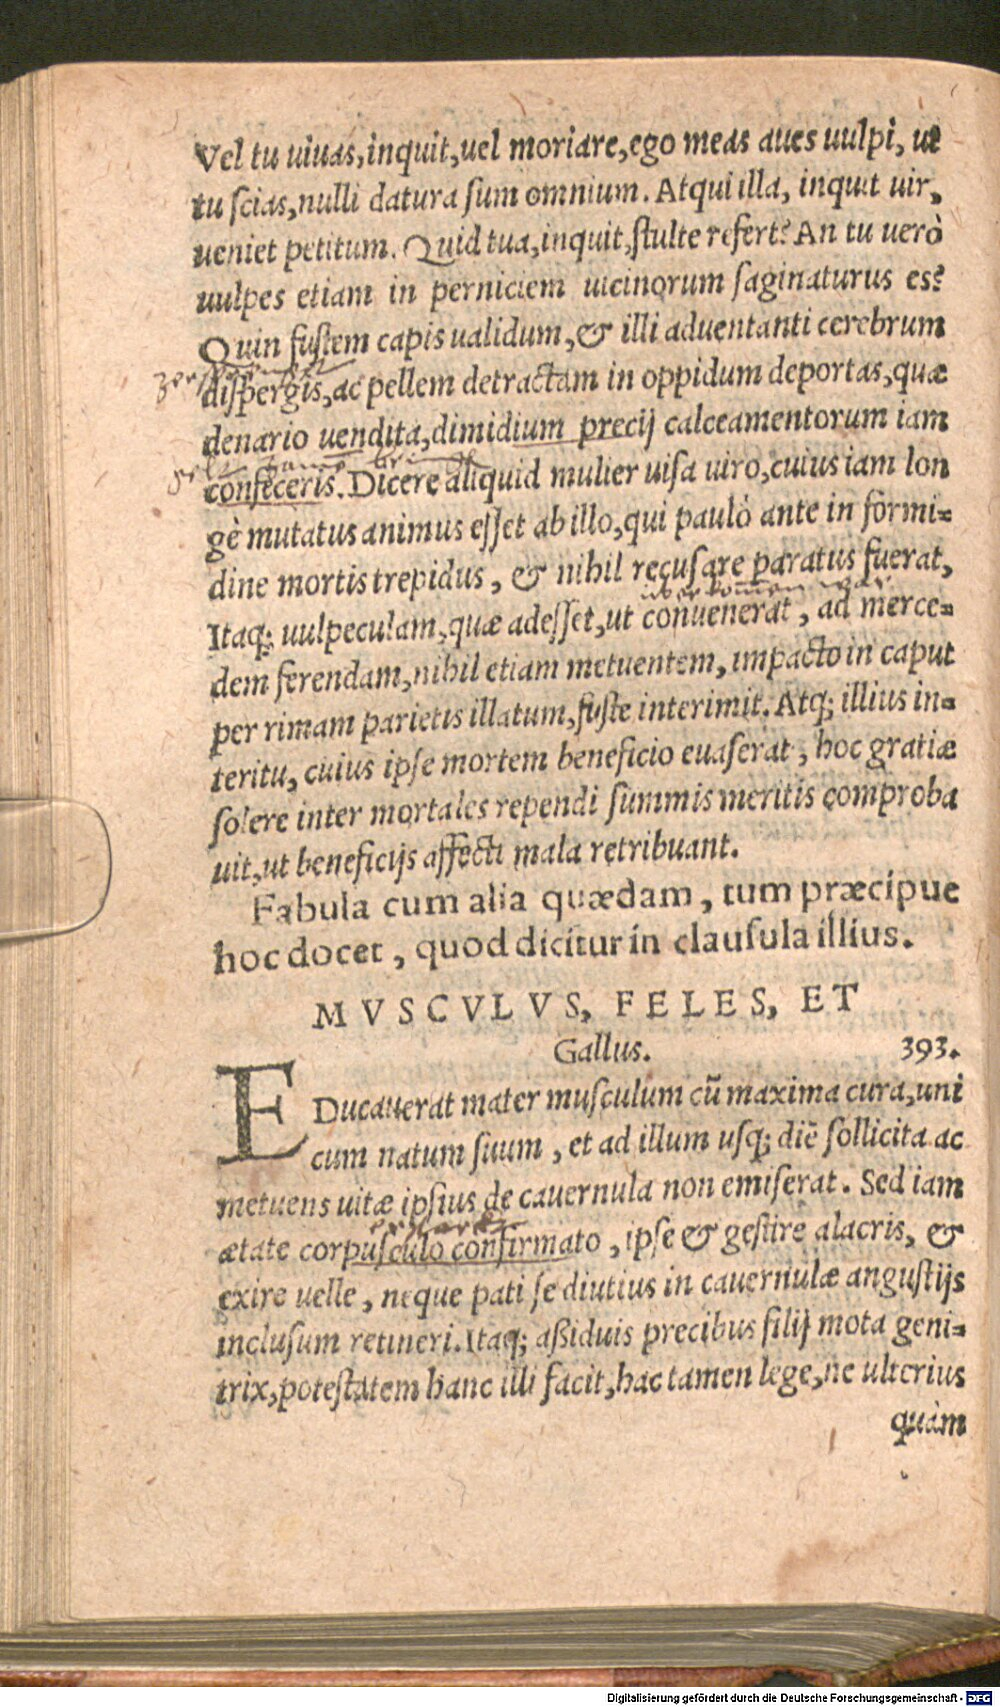 Vel tu uiuas,inquit,uel moriare,ego meas aues uulpi, ut
tu ſcias,nulli datura ſum omnium. Atqui illa, inquit uir,
ueniet petitum. Quid tua,inquit,ſtulte refert? An tu uerò
uulpes etiam in perniciem uicinorum ſaginaturus es?
Quin fuſtem capis ualidum,& illi aduentanti cerebrum
diſpergis,ac pellem detractam in oppidum deportas,quæ
denario uendita,dimidium precij calceamentorum iam
confeceris. Dicere aliquid mulier uiſa uiro,cuius iam lon
gè mutatus animus eſſet ab illo,qui paulò ante in formi=
dine mortis trepidus, & nihil recuſare paratus fuerat,
uberkomen war
Itaq; uulpeculam,quæ adeſſet,ut conuenerat, ad merce=
dem ferendam,nihil etiam metuentem, impacto in caput
per rimam parietis illatum,fuſte interimit. Atq; illius in=
teritu, cuius ipſe mortem beneficio euaſerat, hoc gratiæ
ſolere inter mortales rependi ſummis meritis comproba
uit,ut beneficijs affecti mala retribuant.
Fabula cum alia quædam, tum præcipue
hoc docet, quod dicitur in clauſula illius.
MVSCVLVS, FELES, ET
Gallus. 393.
EDucauerat mater muſculum cū maxima cura,uni
cum natum ſuum, et ad illum uſq; diē ſollicita ac
metuens uitæ ipſius de cauernula non emiſerat. Sed iam
ætate corpuſculo confirmato, ipſe & geſtire alacris, &
exire uelle, neque pati ſe diutius in cauernulæ anguſtijs
incluſum retineri. Itaq; aßiduis precibus filij mota geni=
trix,poteſtatem hanc illi facit,hac tamen lege,ne ulterius
quàm
Digitalisierung gefördert durch die Deutsche Forschungsgemeinschaft - DFG